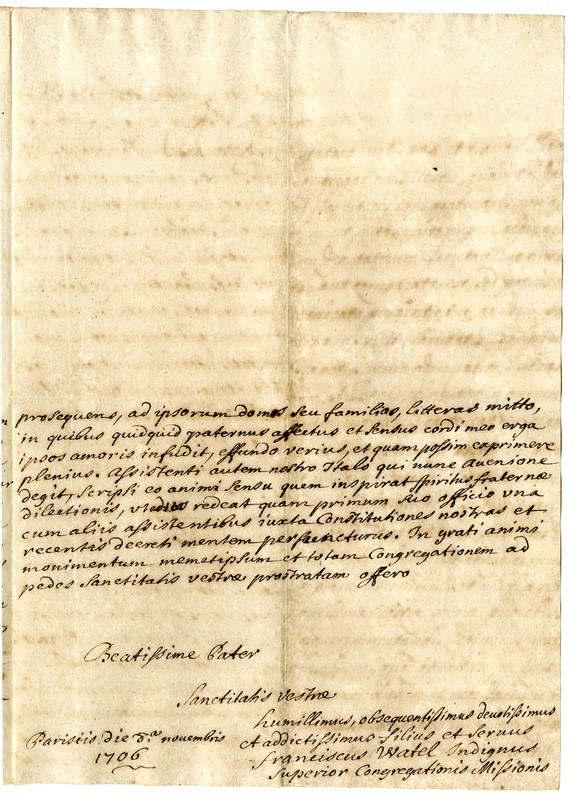 prosequens, ad ipsorum domos seu familias, litteras mitto,
in quibus quidquid paternus affectus et sensus cordi meo erga
ipsos amoris infudit, effundo verius, et quam possim exprimere
plenius. Assistenti autem nostro Italo qui nunc Avenione
degit, scripsi eo animi sensu quem inspirat spiritus fraternæ
dilectionis, redeat quam primum suo officio una
cum aliis assistentibus iuxta Constitutiones nostras et
recentis decreti mentem perfuncturus. In grati animi
monimentum memetipsum et totam Congregationem ad
pedes Sanctitatis vestræ prostratam offero
Beatissime Pater
Sanctitatis vestræ
humillimus, obsequentissimus devotissimus
et addictissimus filius et servus
Franciscus Watel Indignus
Superior Congregationis Missionis
Parisiis die 8.ª novembris
1706